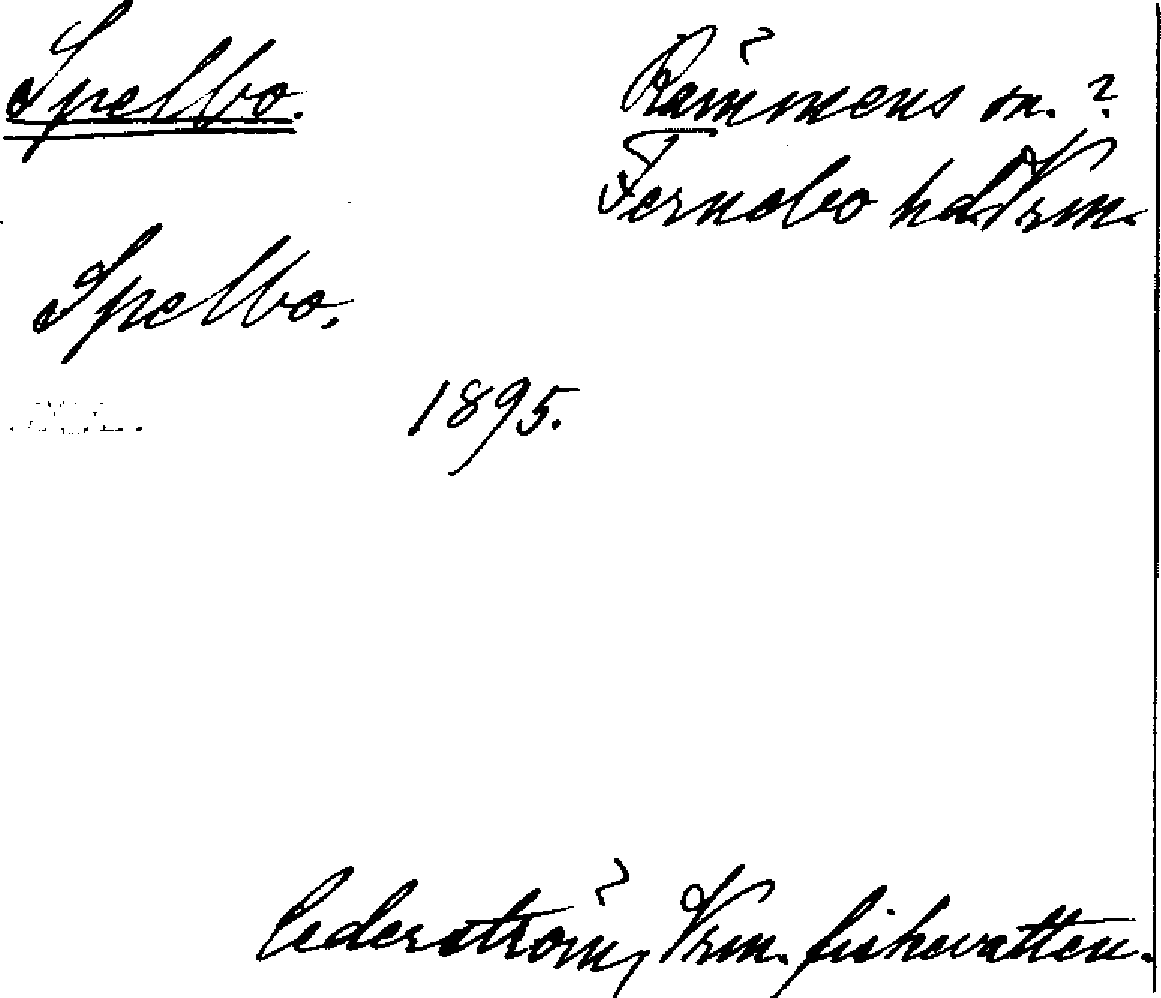 Spelbo.
Rämmens sn. ?
Fernebo hd. Vrm.
Spelbo.
1895.
Cederström, Vrm. fiskevatten.